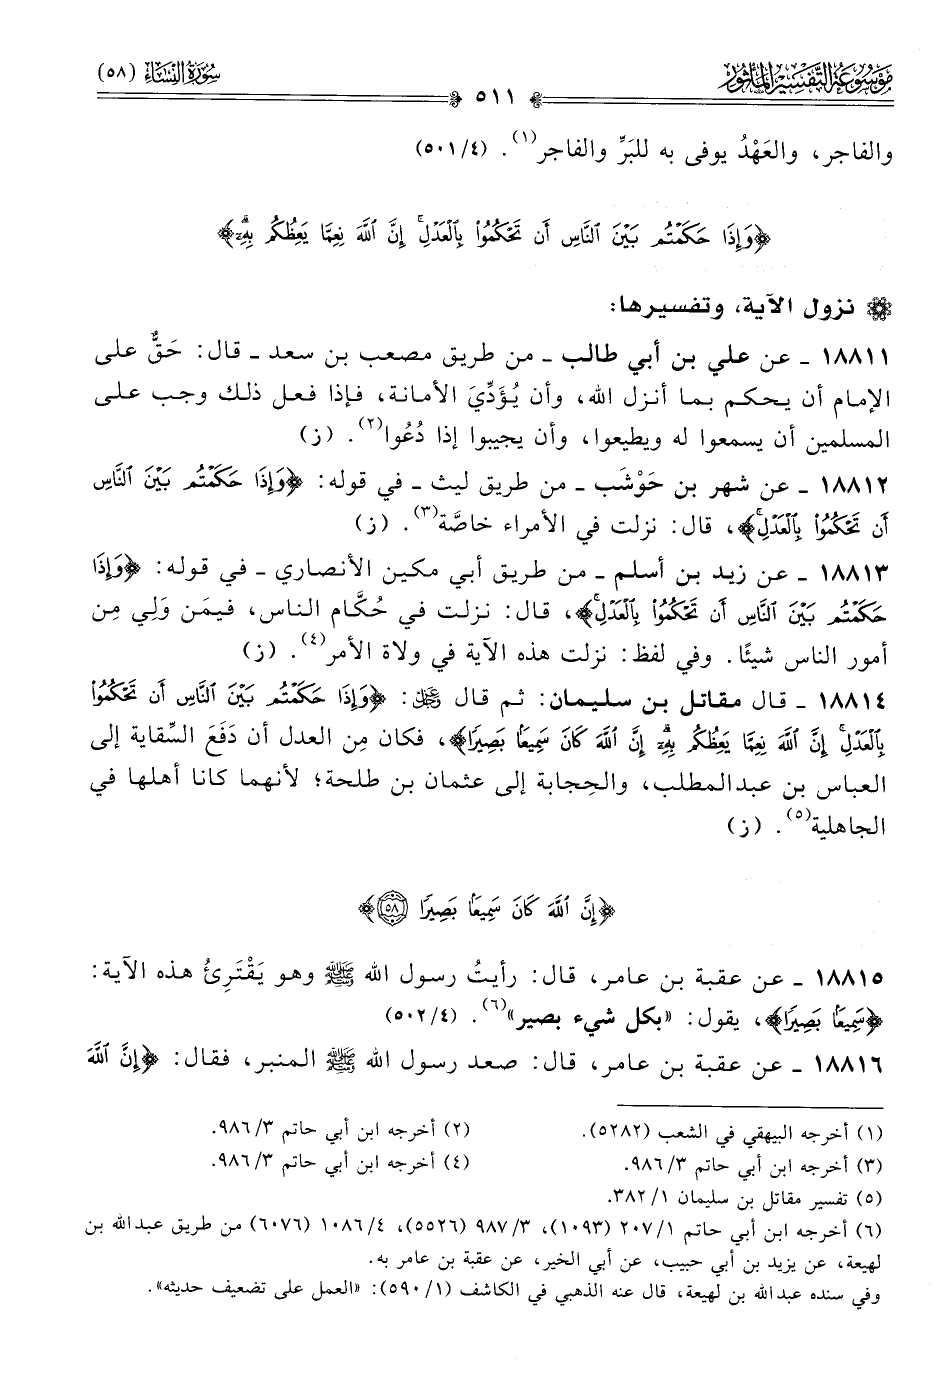 مَوْسُوعَة التَّفْسِير المَأْثُور
٥١١
سُورَةُ النِّسَاء (٥٨)
والفاجر، والعَهْدُ يوفى به للبَرِّ والفاجر(١). (٥٠١/٤)
﴿وَإِذَا حَكَمْتُم بَيْنَ ٱلنَّاسِ أَن تَحْكُمُوا۟ بِٱلْعَدْلِ ۚ إِنَّ ٱللَّهَ نِعِمَّا يَعِظُكُم بِهِۦٓ﴾
نزول الآية، وتفسيرها:
١٨٨١١ ـ عن علي بن أبي طالب ـ من طريق مصعب بن سعد ـ قال: حَقٌّ على
الإمام أن يحكم بما أنزل الله، وأن يُؤَدِّيَ الأمانة، فإذا فعل ذلك وجب على
المسلمين أن يسمعوا له ويطيعوا، وأن يجيبوا إذا دُعُوا(٢). (ز)
١٨٨١٢ ـ عن شهر بن حَوْشَب ـ من طريق ليث ـ في قوله: ﴿وَإِذَا حَكَمْتُم بَيْنَ ٱلنَّاسِ
أَن تَحْكُمُوا۟ بِٱلْعَدْلِ ۚ﴾، قال: نزلت في الأمراء خاصَّة(٣). (ز)
١٨٨١٣ ـ عن زيد بن أسلم ـ من طريق أبي مكين الأنصاري ـ في قوله: ﴿وَإِذَا
حَكَمْتُم بَيْنَ ٱلنَّاسِ أَن تَحْكُمُوا۟ بِٱلْعَدْلِ ۚ﴾، قال: نزلت في حُكَّام الناس، فيمَن وَلِي مِن
أمور الناس شيئًا. وفي لفظ: نزلت هذه الآية في ولاة الأمر(٤). (ز)
١٨٨١٤ ـ قال مقاتل بن سليمان: ثم قال ﷿: ﴿وَإِذَا حَكَمْتُم بَيْنَ ٱلنَّاسِ أَن تَحْكُمُوا۟
بِٱلْعَدْلِ ۚ إِنَّ ٱللَّهَ نِعِمَّا يَعِظُكُم بِهِۦٓ ۗ إِنَّ ٱللَّهَ كَانَ سَمِيعًۢا بَصِيرًا﴾، فكان مِن العدل أن دَفَعَ السِّقاية إلى
العباس بن عبدالمطلب، والحِجابة إلى عثمان بن طلحة؛ لأنهما كانا أهلها في
الجاهلية(٥). (ز)
﴿إِنَّ ٱللَّهَ كَانَ سَمِيعًۢا بَصِيرًا ٥٨﴾
١٨٨١٥ ـ عن عقبة بن عامر، قال: رأيتُ رسول الله ﷺ وهو يَقْتَرِئُ هذه الآية:
﴿سَمِيعًۢا بَصِيرًا﴾، يقول: «بكل شيء بصير»(٦). (٥٠٢/٤)
١٨٨١٦ ـ عن عقبة بن عامر، قال: صعد رسول الله ﷺ المنبر، فقال: ﴿إِنَّ ٱللَّهَ
(١) أخرجه البيهقي في الشعب (٥٢٨٢). (٢) أخرجه ابن أبي حاتم ٩٨٦/٣.
(٣) أخرجه ابن أبي حاتم ٩٨٦/٣. (٤) أخرجه ابن أبي حاتم ٩٨٦/٣.
(٥) تفسير مقاتل بن سليمان ٣٨٢/١.
(٦) أخرجه ابن أبي حاتم ٢٠٧/١ (١٠٩٣)، ٩٨٧/٣ (٥٥٢٦)، ١٠٨٦/٤ (٦٠٧٦) من طريق عبدالله بن
لهيعة، عن يزيد بن أبي حبيب، عن أبي الخير، عن عقبة بن عامر به.
وفي سنده عبدالله بن لهيعة، قال عنه الذهبي في الكاشف (٥٩٠/١): «العمل على تضعيف حديثه».